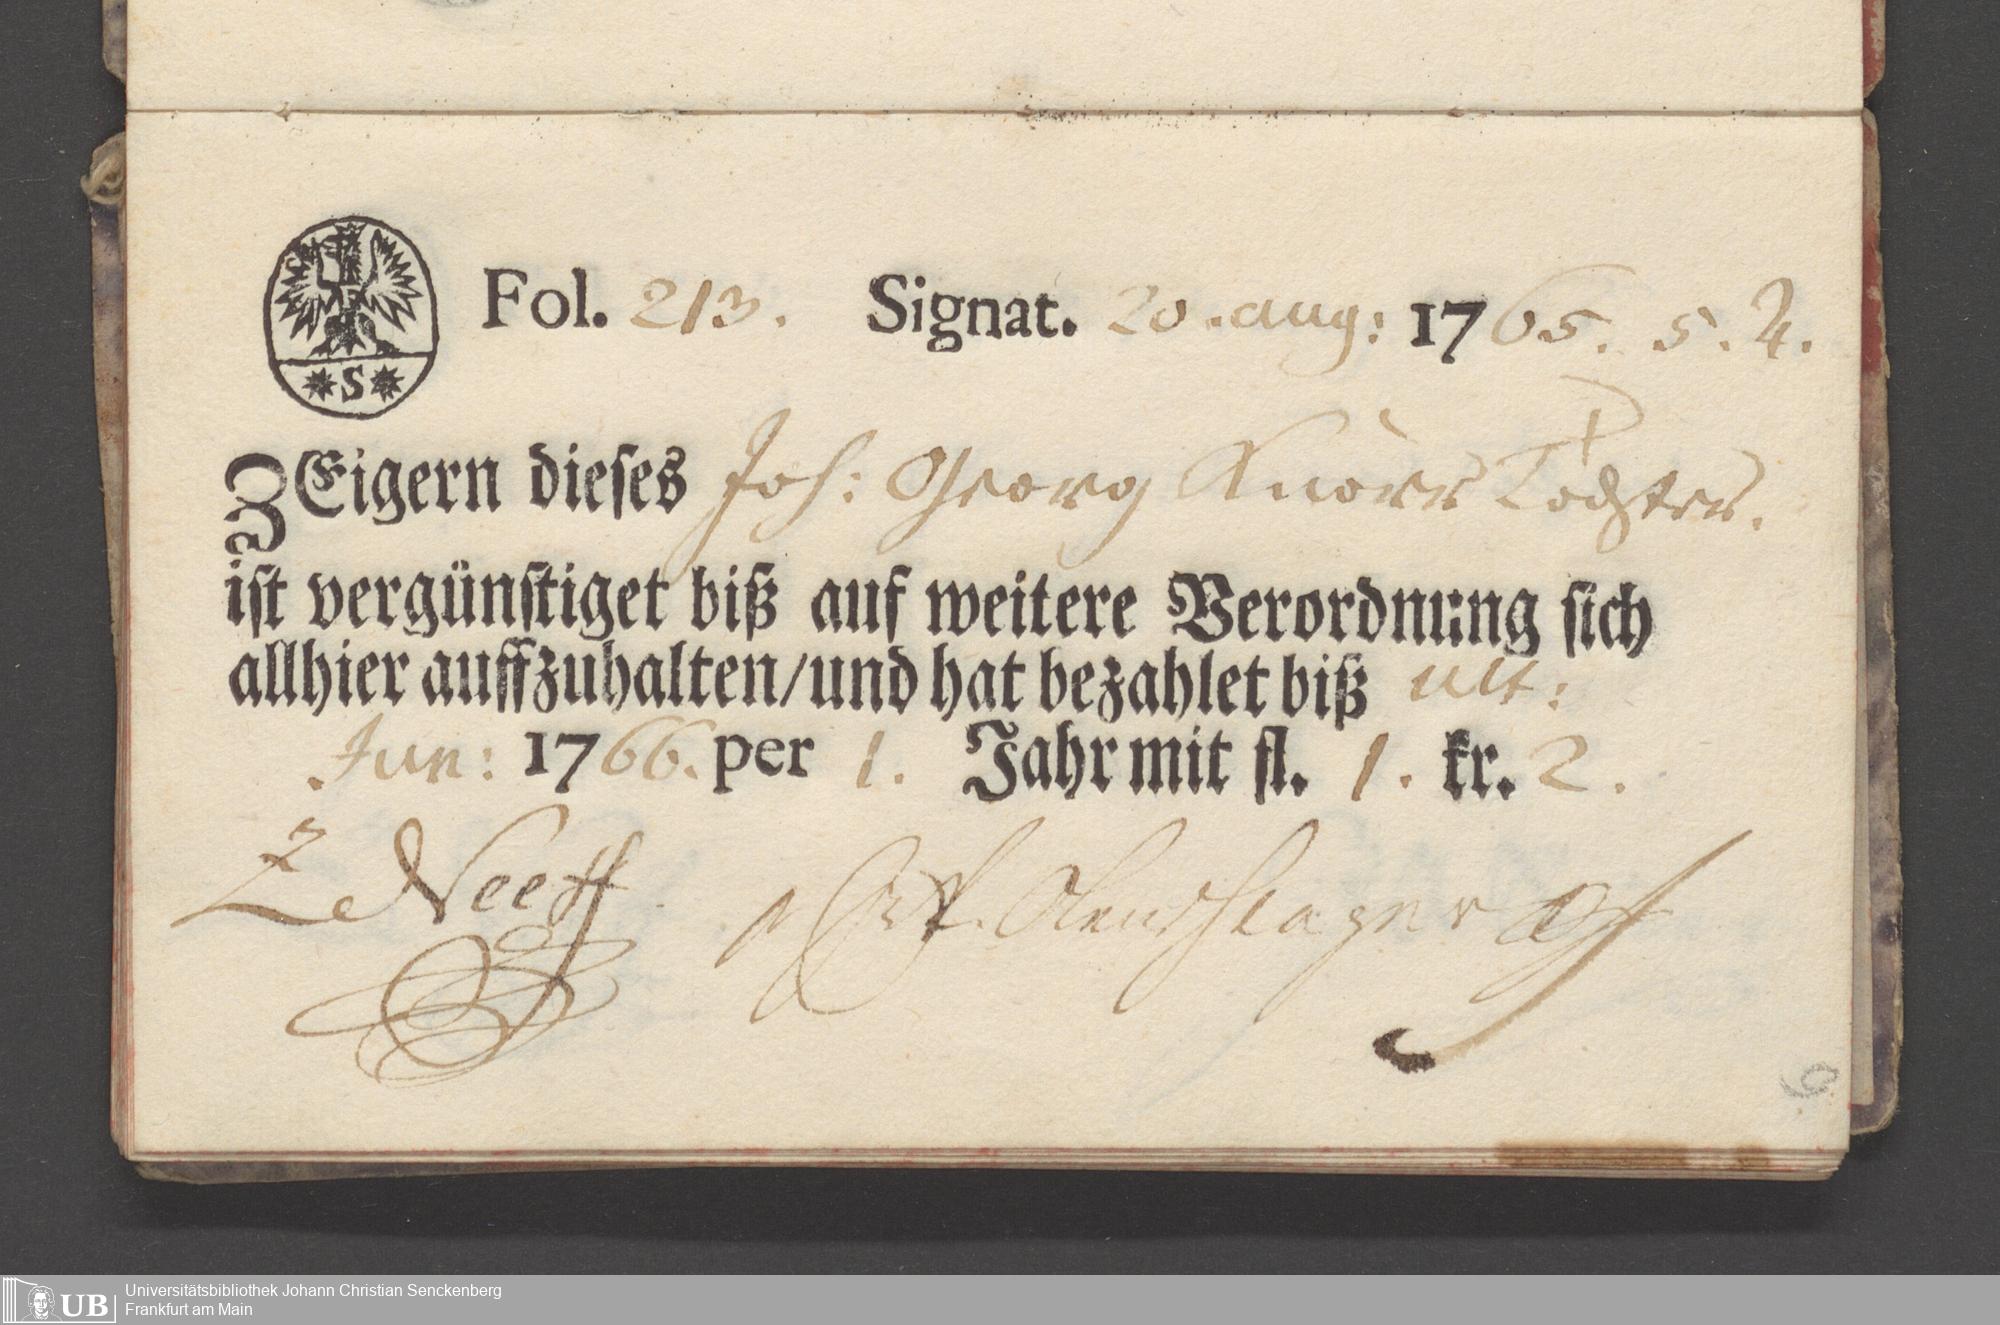 Fol. 213. Signat. 20. aug: 1765. 5. 2.
S
ZEigern dieses Joh: Georg Knörr Tochter.
ist vergünstiget biß auf weitere Verordnung sich
allhier auffzuhalten/und hat bezahlet biß ult:
Jun: 1766. per 1. Jahr mit fl. 1. kr. 2.
Neeff
Olenschlager
6
UB
Universitätsbibliothek Johann Christian Senckenberg
Frankfurt am Main